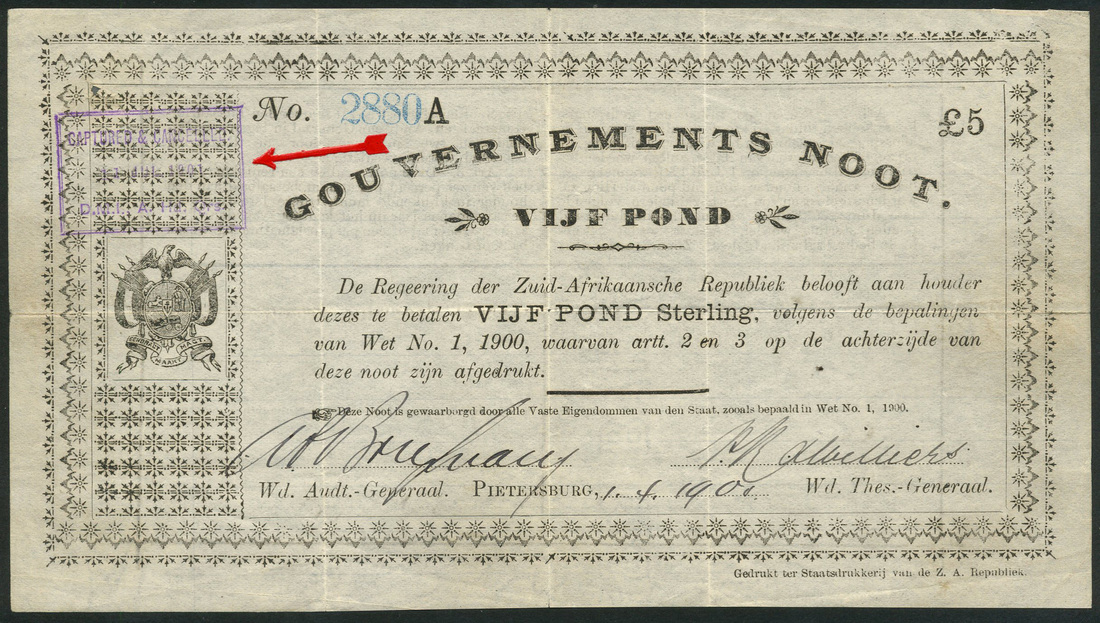 No. 2880 A
£5
CAPTURED & CANCELLED
GOUVERNEMENTS NOOT.
VIJF POND
De Regeering der Zuid-Afrikaansche Republiek belooft aan houder
dezes te betalen VIJF POND Sterling, volgens de bepalingen
van Wet No. 1, 1900, waarvan artt. 2 en 3 op de achterzijde van
deze noot zijn afgedrukt.
Deze Noot is gewaarborgd door alle Vaste Eigendommen van den Staat, zooals bepaald in Wet No. 1, 1900.
Wd. Audt.-Generaal. PIETERSBURG, 1. 4. 1901 Wd. Thes.-Generaal.
Gedrukt ter Staatsdrukkerij van de Z. A. Republiek.